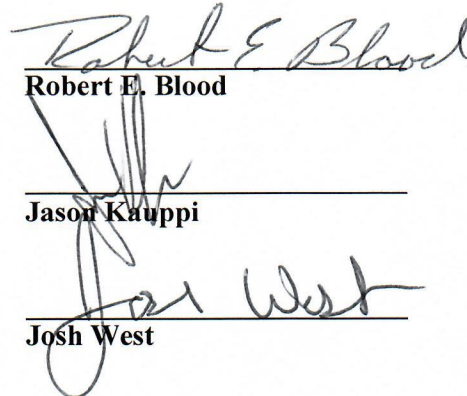 Robert E Blood
Robert E. Blood
Jason Kauppi
Josh West
Josh West